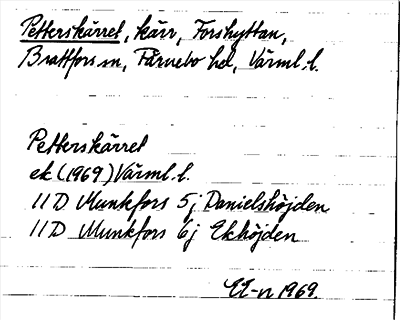 Petterskärret, kärr, Forshyttan,
Brattfors sn, Färnebo hd, Värml. l.
Petterskärret
ek (1969) Värml. l.
11D Munkfors 5j Danielshöjden
11D Munkfors 6j Ekhöjden
EE-n 1969.